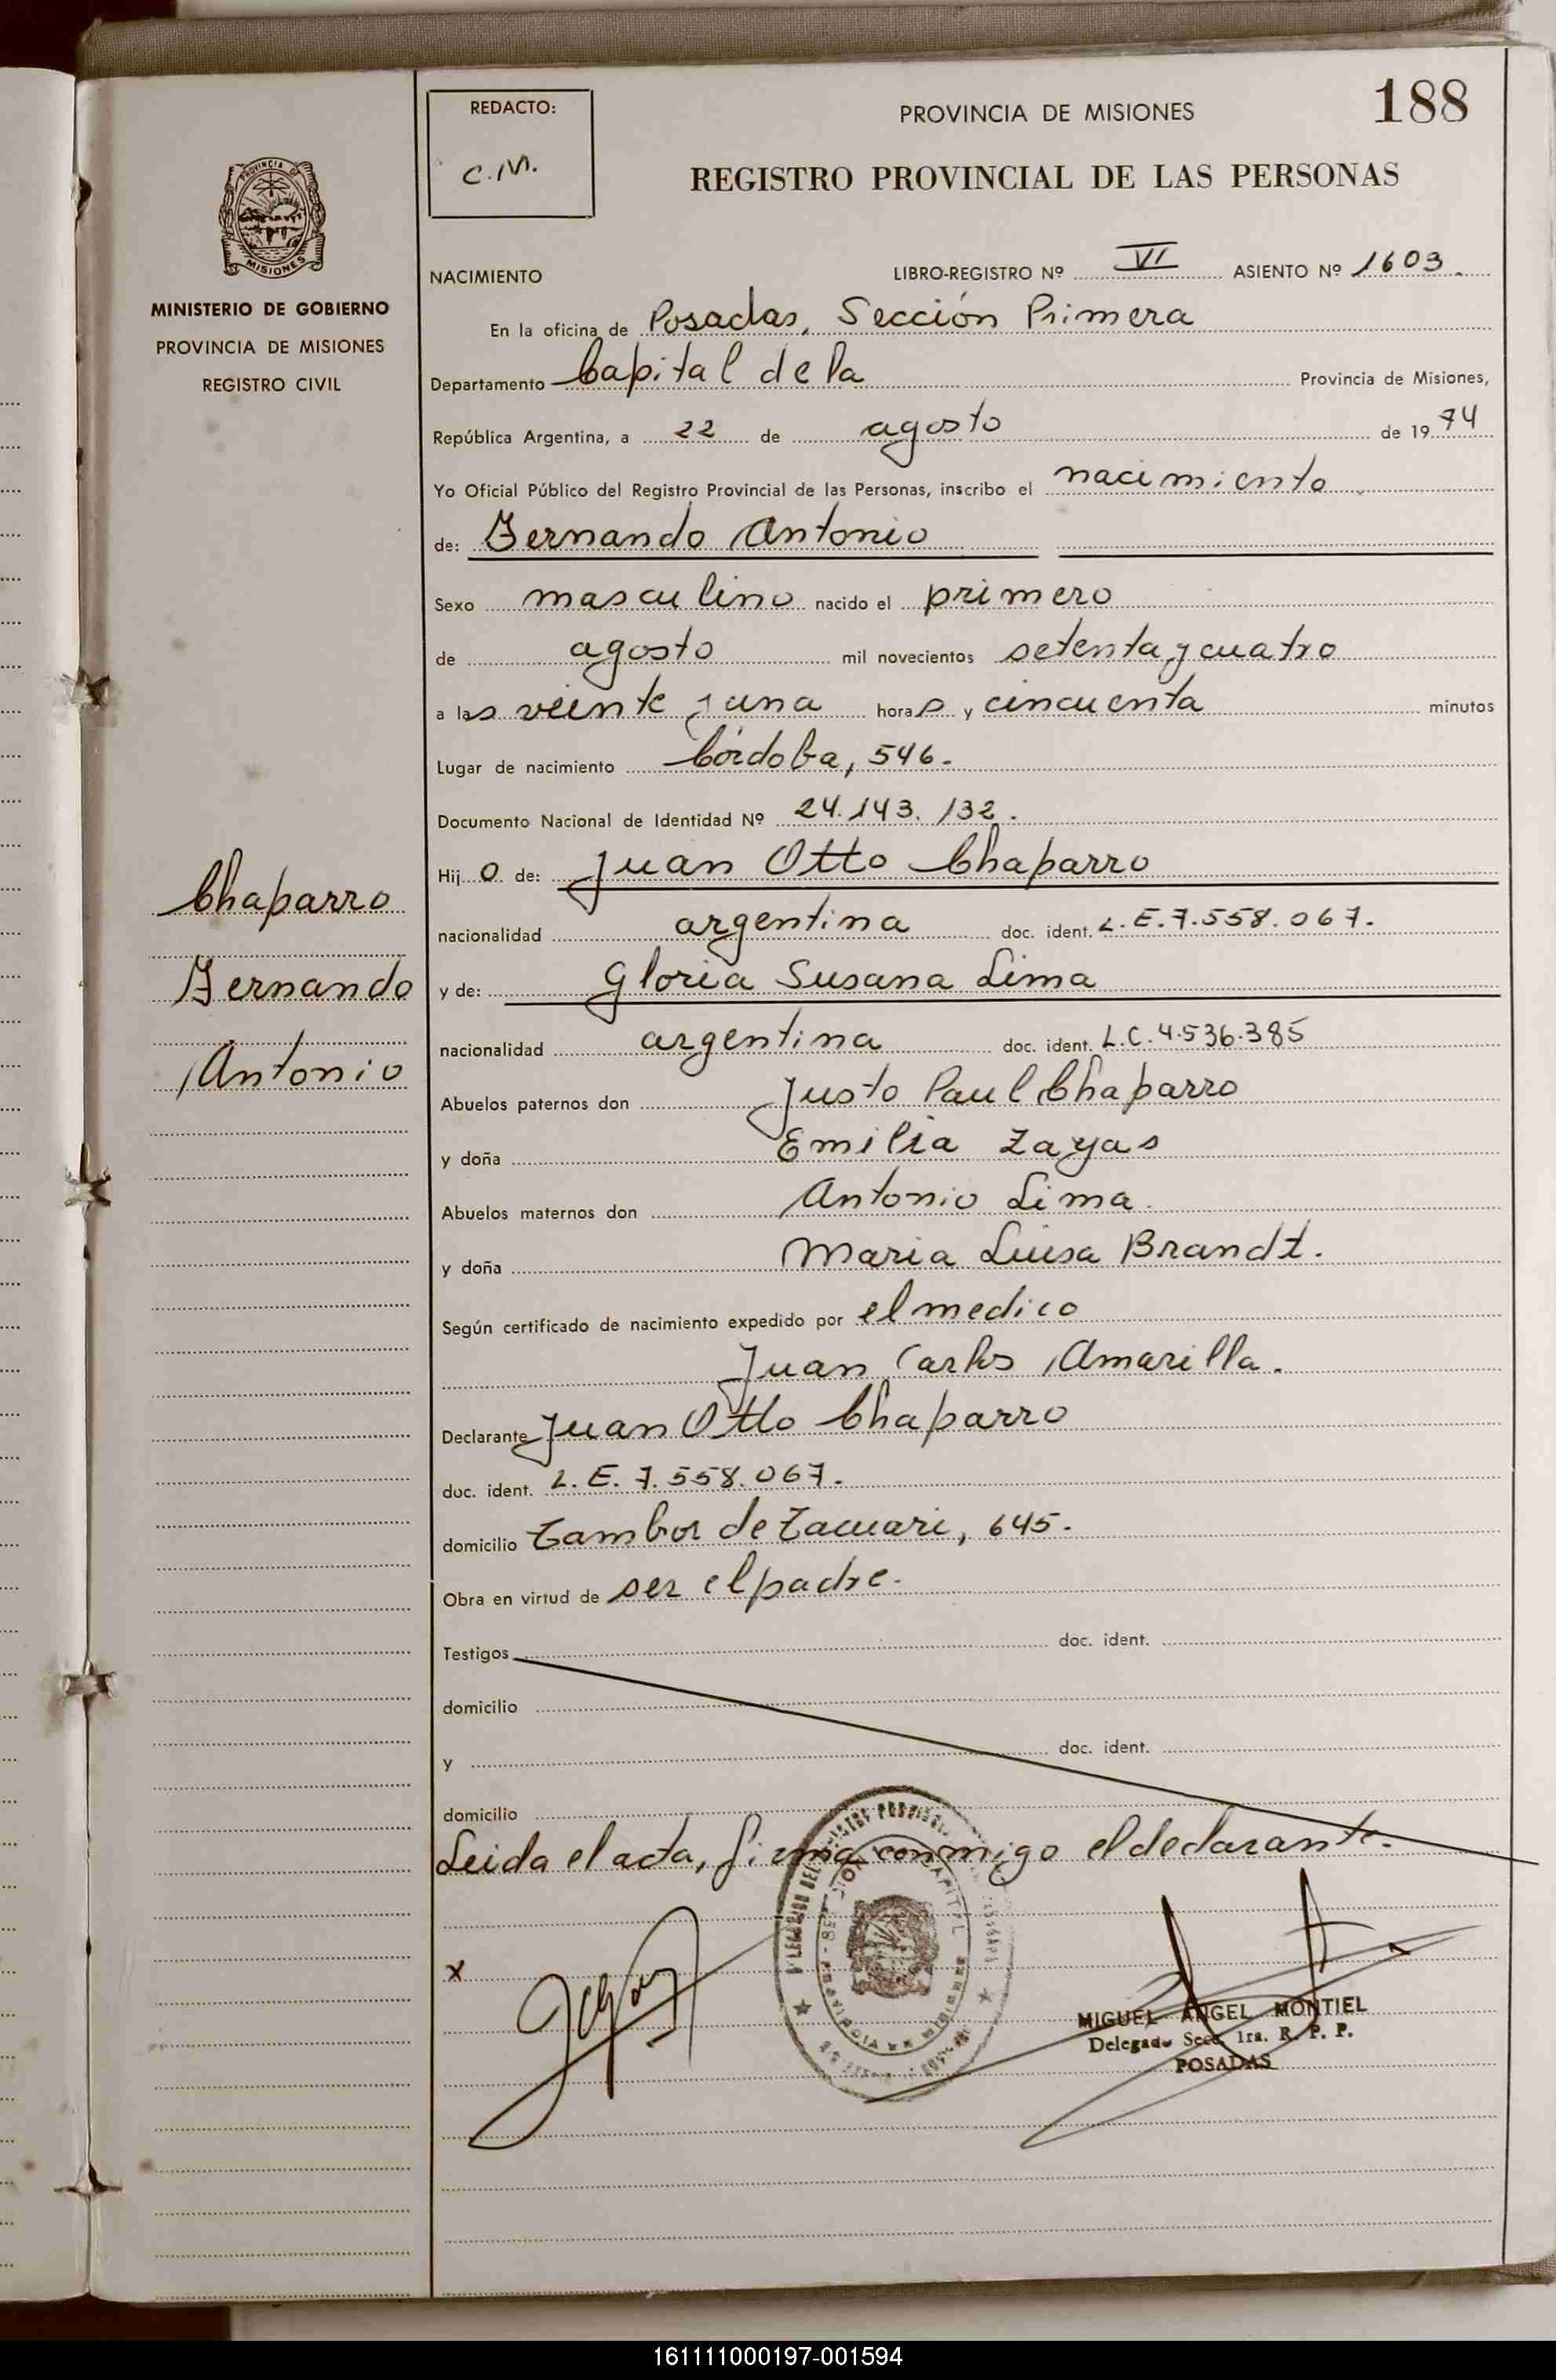 REDACTO:
C.M.
PROVINCIA DE MISIONES
188
REGISTRO PROVINCIAL DE LAS PERSONAS
MISIONES
MINISTERIO DE GOBIERNO
PROVINCIA DE MISIONES
REGISTRO CIVIL
NACIMIENTO
LIBRO-REGISTRO Nº VI ASIENTO Nº 1603.
En la oficina de Posadas, Sección Primera
Departamento Capital de la Provincia de Misiones,
República Argentina, a 22 de agosto de 1974
Yo Oficial Público del Registro Provincial de las Personas, inscribo el nacimiento
de: Fernando Antonio
Sexo masculino nacido el primero
de agosto mil novecientos setenta y cuatro
a las veinte y una horas y cincuenta minutos
Lugar de nacimiento Córdoba, 546.
Documento Nacional de Identidad Nº 24.143.132.
Hijo de: Juan Otto Chaparro
nacionalidad argentina doc. ident. L.E.7.558.067.
y de: Gloria Susana Lima
nacionalidad argentina doc. ident. L.C.4.536.385
Abuelos paternos don Justo Paul Chaparro
y doña Emilia Zayas
Abuelos maternos don Antonio Lima
y doña Maria Luisa Brandt.
Según certificado de nacimiento expedido por el medico
Juan Carlos Amarilla.
Declarante Juan Otto Chaparro
doc. ident. L.E. 7.558.067.
domicilio Tambor de Tacuari, 645.
Obra en virtud de ser el padre.
Testigos doc. ident.
domicilio
y doc. ident.
domicilio
Leida el acta, firma conmigo el declarante.
x
MIGUEL ANGEL MONTIEL
Delegado Secc. 1ra. R. P. P.
POSADAS
Chaparro
Fernando
Antonio
161111000197-001594